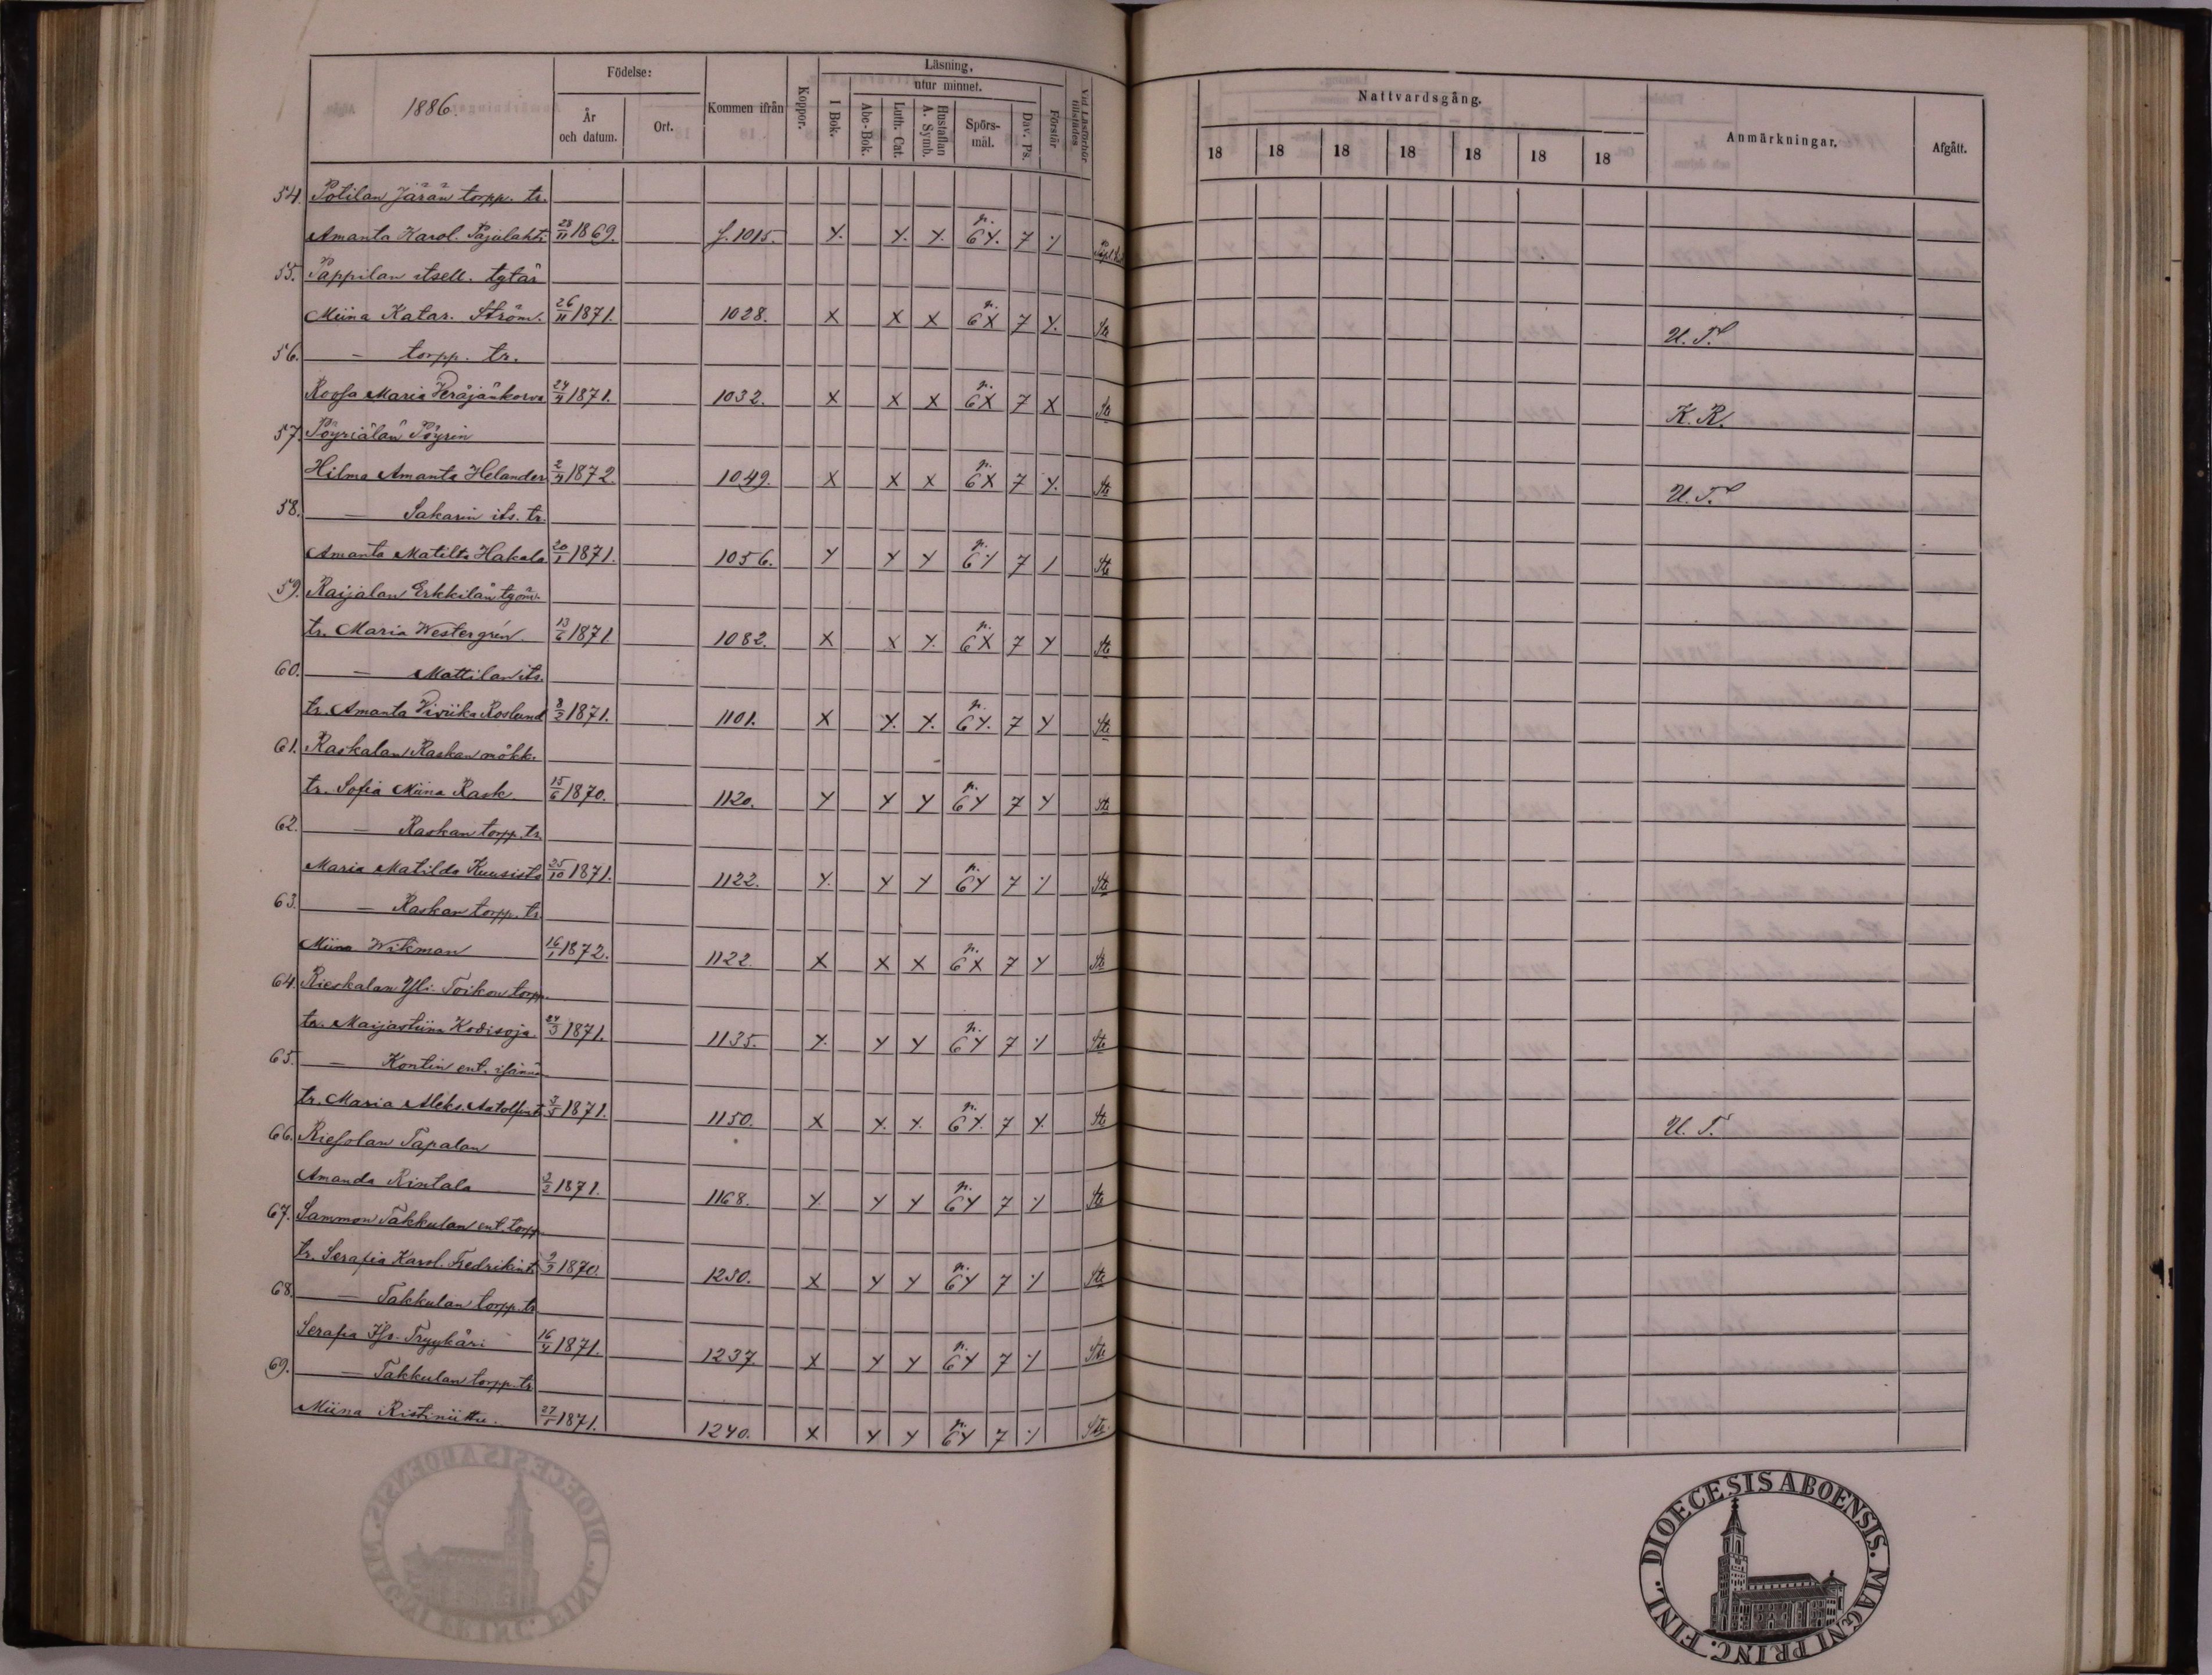 1886.
Födelse:
År
och datum.
Ort.
Kommen ifrån
Koppor.
Läsning.
utur minnet.
I Bok.
Abc-Bok.
Luth. Cat.
Hustaflan
A. Symb.
Spörs-
mål.
Dav. Ps.
Förstår
Vid Läsförhör
tillstädes.
Nattvardsgång.
18 18 18 18 18 18 18
Anmärkningar.
Afgått.
54. Potilan Järän torpp. tr.
Amanta Karol. Pajulahti 28/11 1869. f. 1015. Y. Y. Y. n. 6Y. 7 %
55. Pappilan itsell. tytär
Miina Katar. Ström. 26/11 1871. 1028. X X X n. 6X 7 Y. Ste U. T.
56. — torpp. tr.
Roosa Maria Keräjänkorva 24/9 1871. 1032. X X X n. 6X 7 X Ste K. R.
57. Pöyriälän Pöyrin
Hilma Amanta Helander 2/4 1872. 1049. X X X n. 6X 7 Y. Ste U. T.
58. — Sakarin its. tr.
Amanta Matilta Hakala 20/1 1871. 1056. Y Y Y n. 6Y 7 / Ste
59. Raijalan Erkkilän työm.
tr. Maria Westergrén 13/6 1871 1082. X X Y. n. 6X 7 Y Ste
60. — Mattilan its.
tr. Amanta Viviika Roslund 8/2 1871. 1101. X Y. Y. n. 6Y. 7 Y Ste
61. Raskalan Raskan mökk.
tr. Sofia Miina Rask 15/6 1870. 1120. Y Y Y n. 6Y 7 Y Ste
62. — Raskan torpp. tr.
Maria Matilda Kuusisto 25/10 1871. 1122. Y. Y Y n. 6Y 7 % Ste
63. — Raskan torpp. tr.
Miina Wikman 16/1 1872. 1122. X X X n. 6X 7 Y Ste
64. Rieskalan Yli-Toikon torpp.
tr. Maijastiina Kodisoja 24/3 1871. 1135. Y. Y Y n. 6Y 7 % Ste
65. — Kontin ent. isännän
tr. Maria Aleks. Aatolfint. 3/5 1871. 1150. X Y. Y. n. 6Y. 7 Y. Ste U. T.
66. Riesolan Tapalan
Amanda Rintala 3/2 1871. 1168. Y. Y Y n. 6Y 7 % Ste
67. Sammon Takkulan ent. torpp.
tr. Serafia Karol. Fredrikint. 2/9 1870. 1250. X Y Y n. 6Y 7 % Ste
68. — Takkulan torpp. tr.
Serafia Tryykäri 16/4 1871. 1237 X Y Y n. 6Y 7 % Ste
69. — Takkulan torpp. tr.
Miina Ristiniittu. 27/5 1871. 1240. X Y Y n. 6Y 7 % Ste.
DIOECESIS ABOENSIS. MAGNI PRINC. FINL.